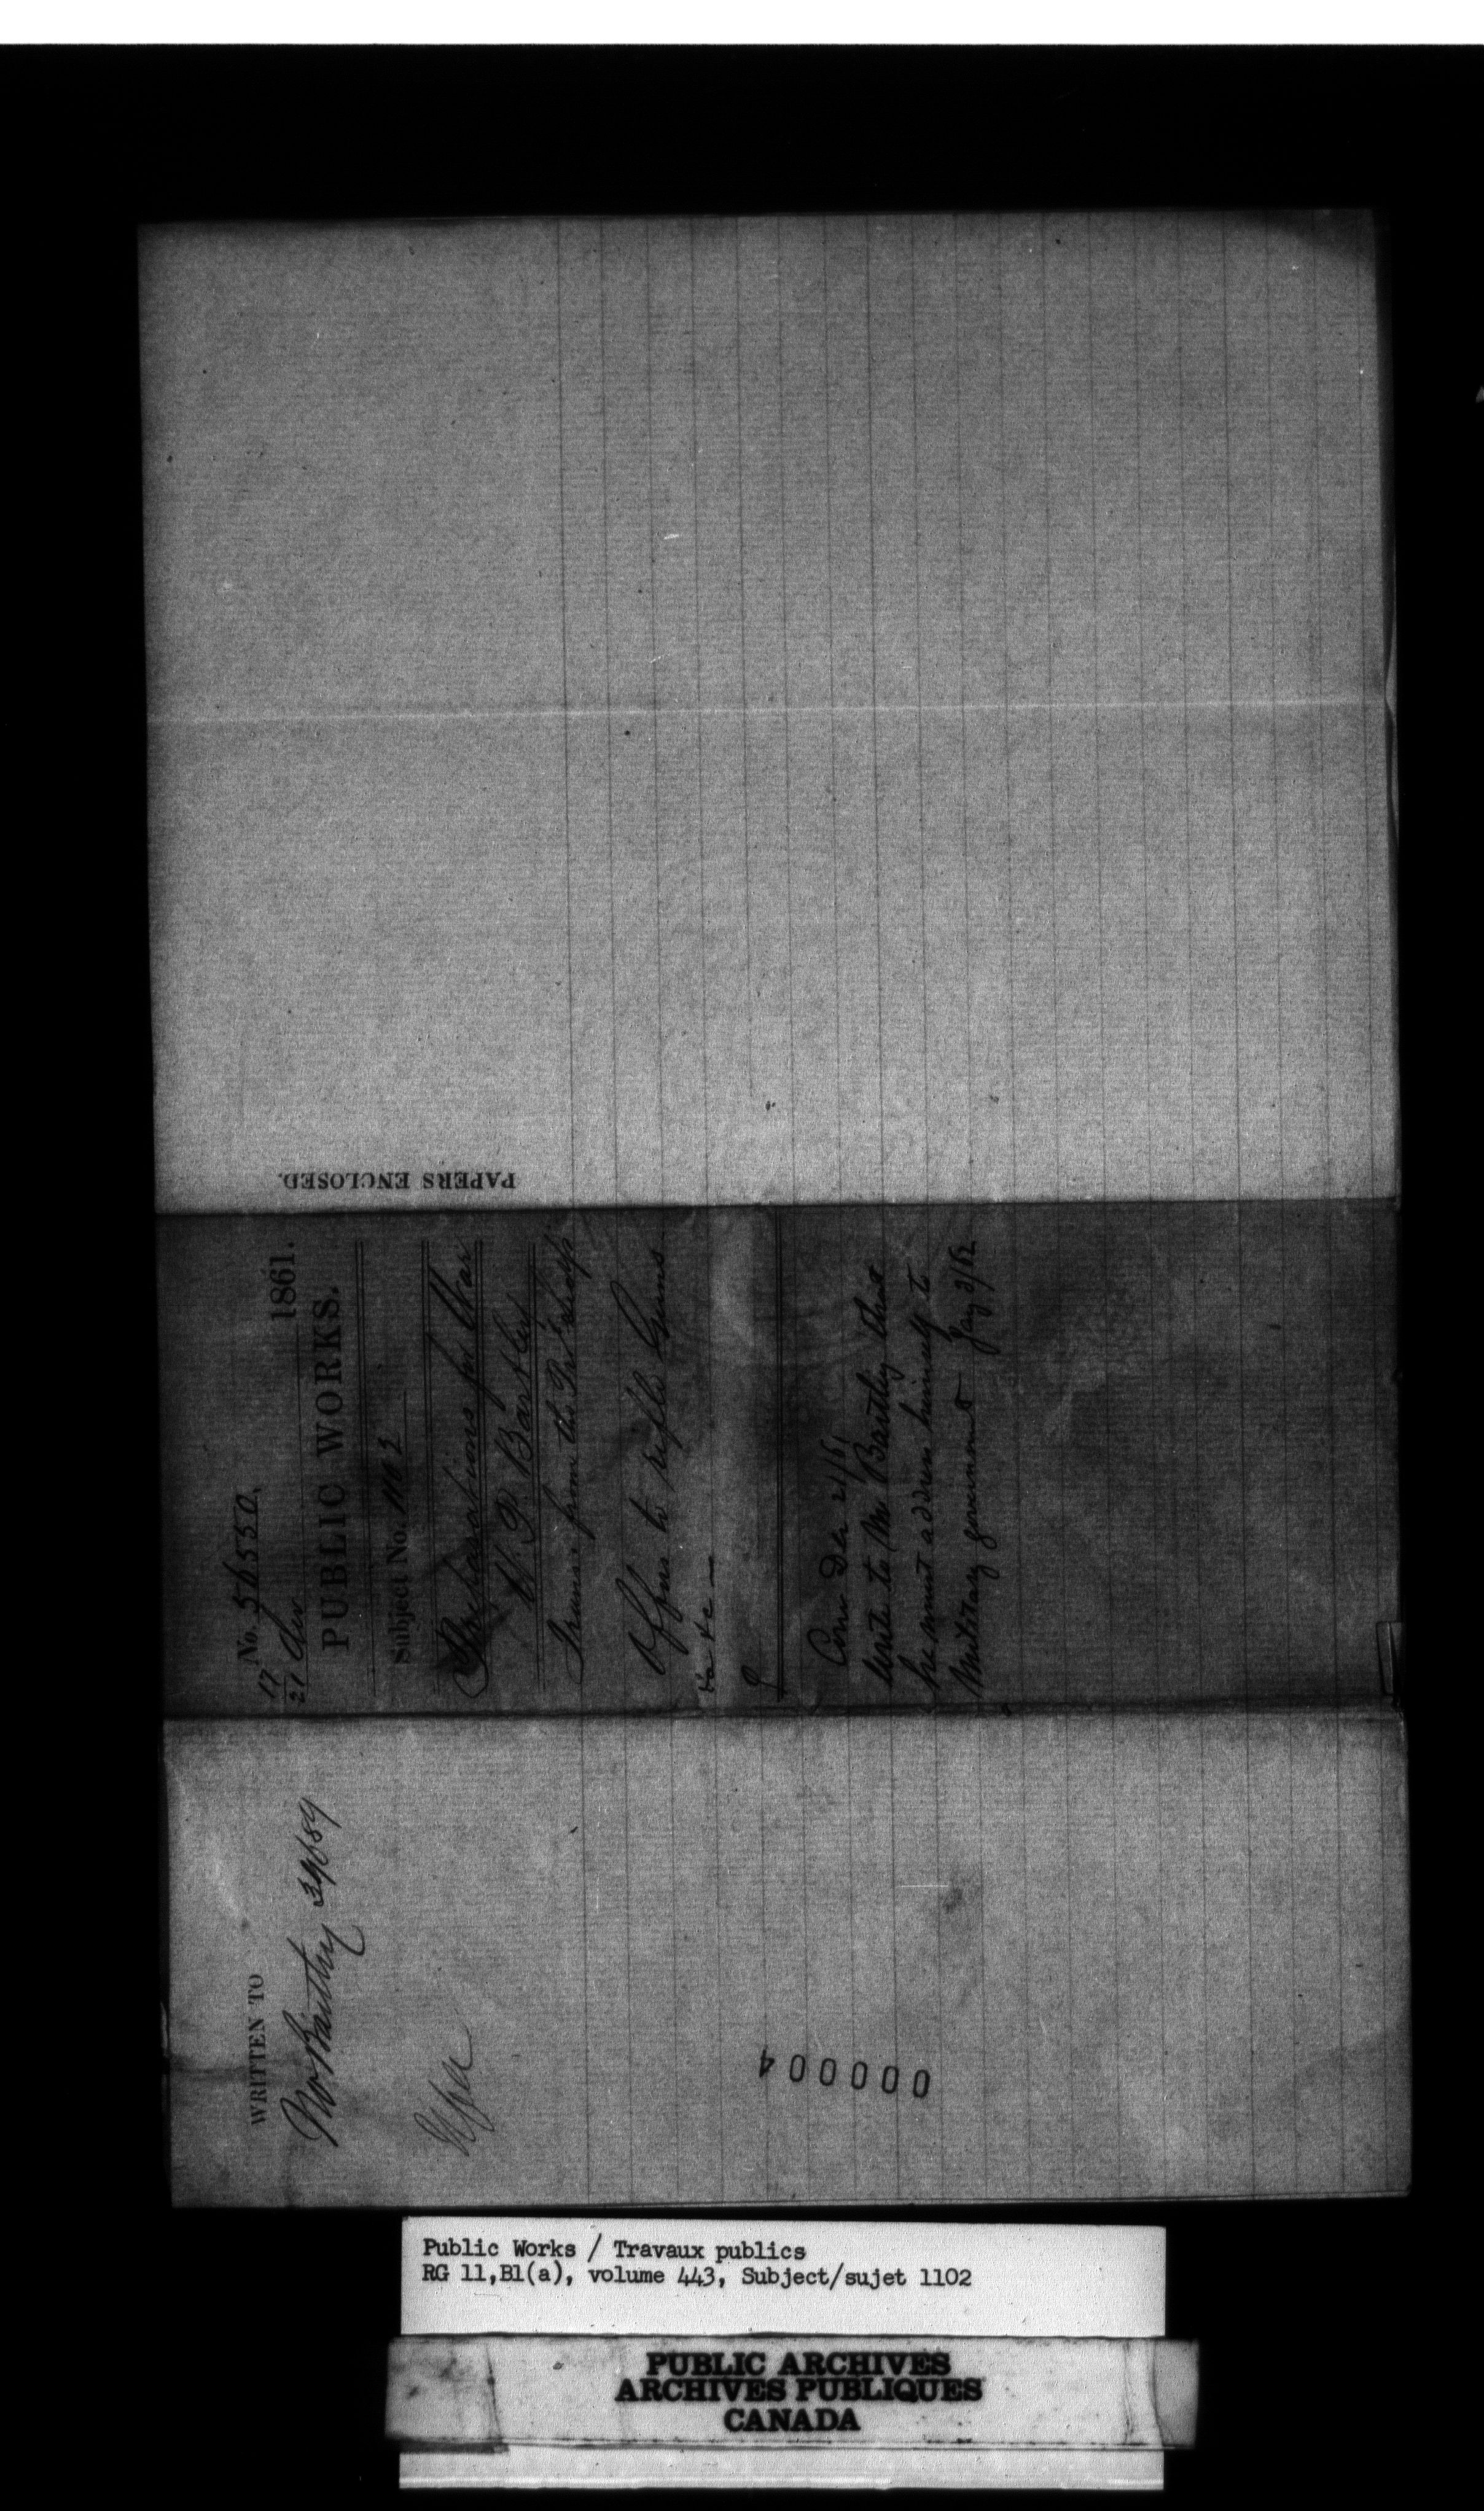 PAPERS ENCLOSED.
No. 56550.
17
21 Dec 1861.
PUBLIC WORKS.
Subject No. 1102
Preparations for War
W. P. Bartley
from the
Offers to rifle Guns.
&c &c —
Com Dec 21/61
Write to Mr Bartley that
he must address himself to
Military government Jay 3/62
WRITTEN TO
Mr Bartley 39689
000004
Public Works / Travaux publics
RG 11,B1(a), volume 443, Subject/sujet 1102
PUBLIC ARCHIVES
ARCHIVES PUBLIQUES
CANADA